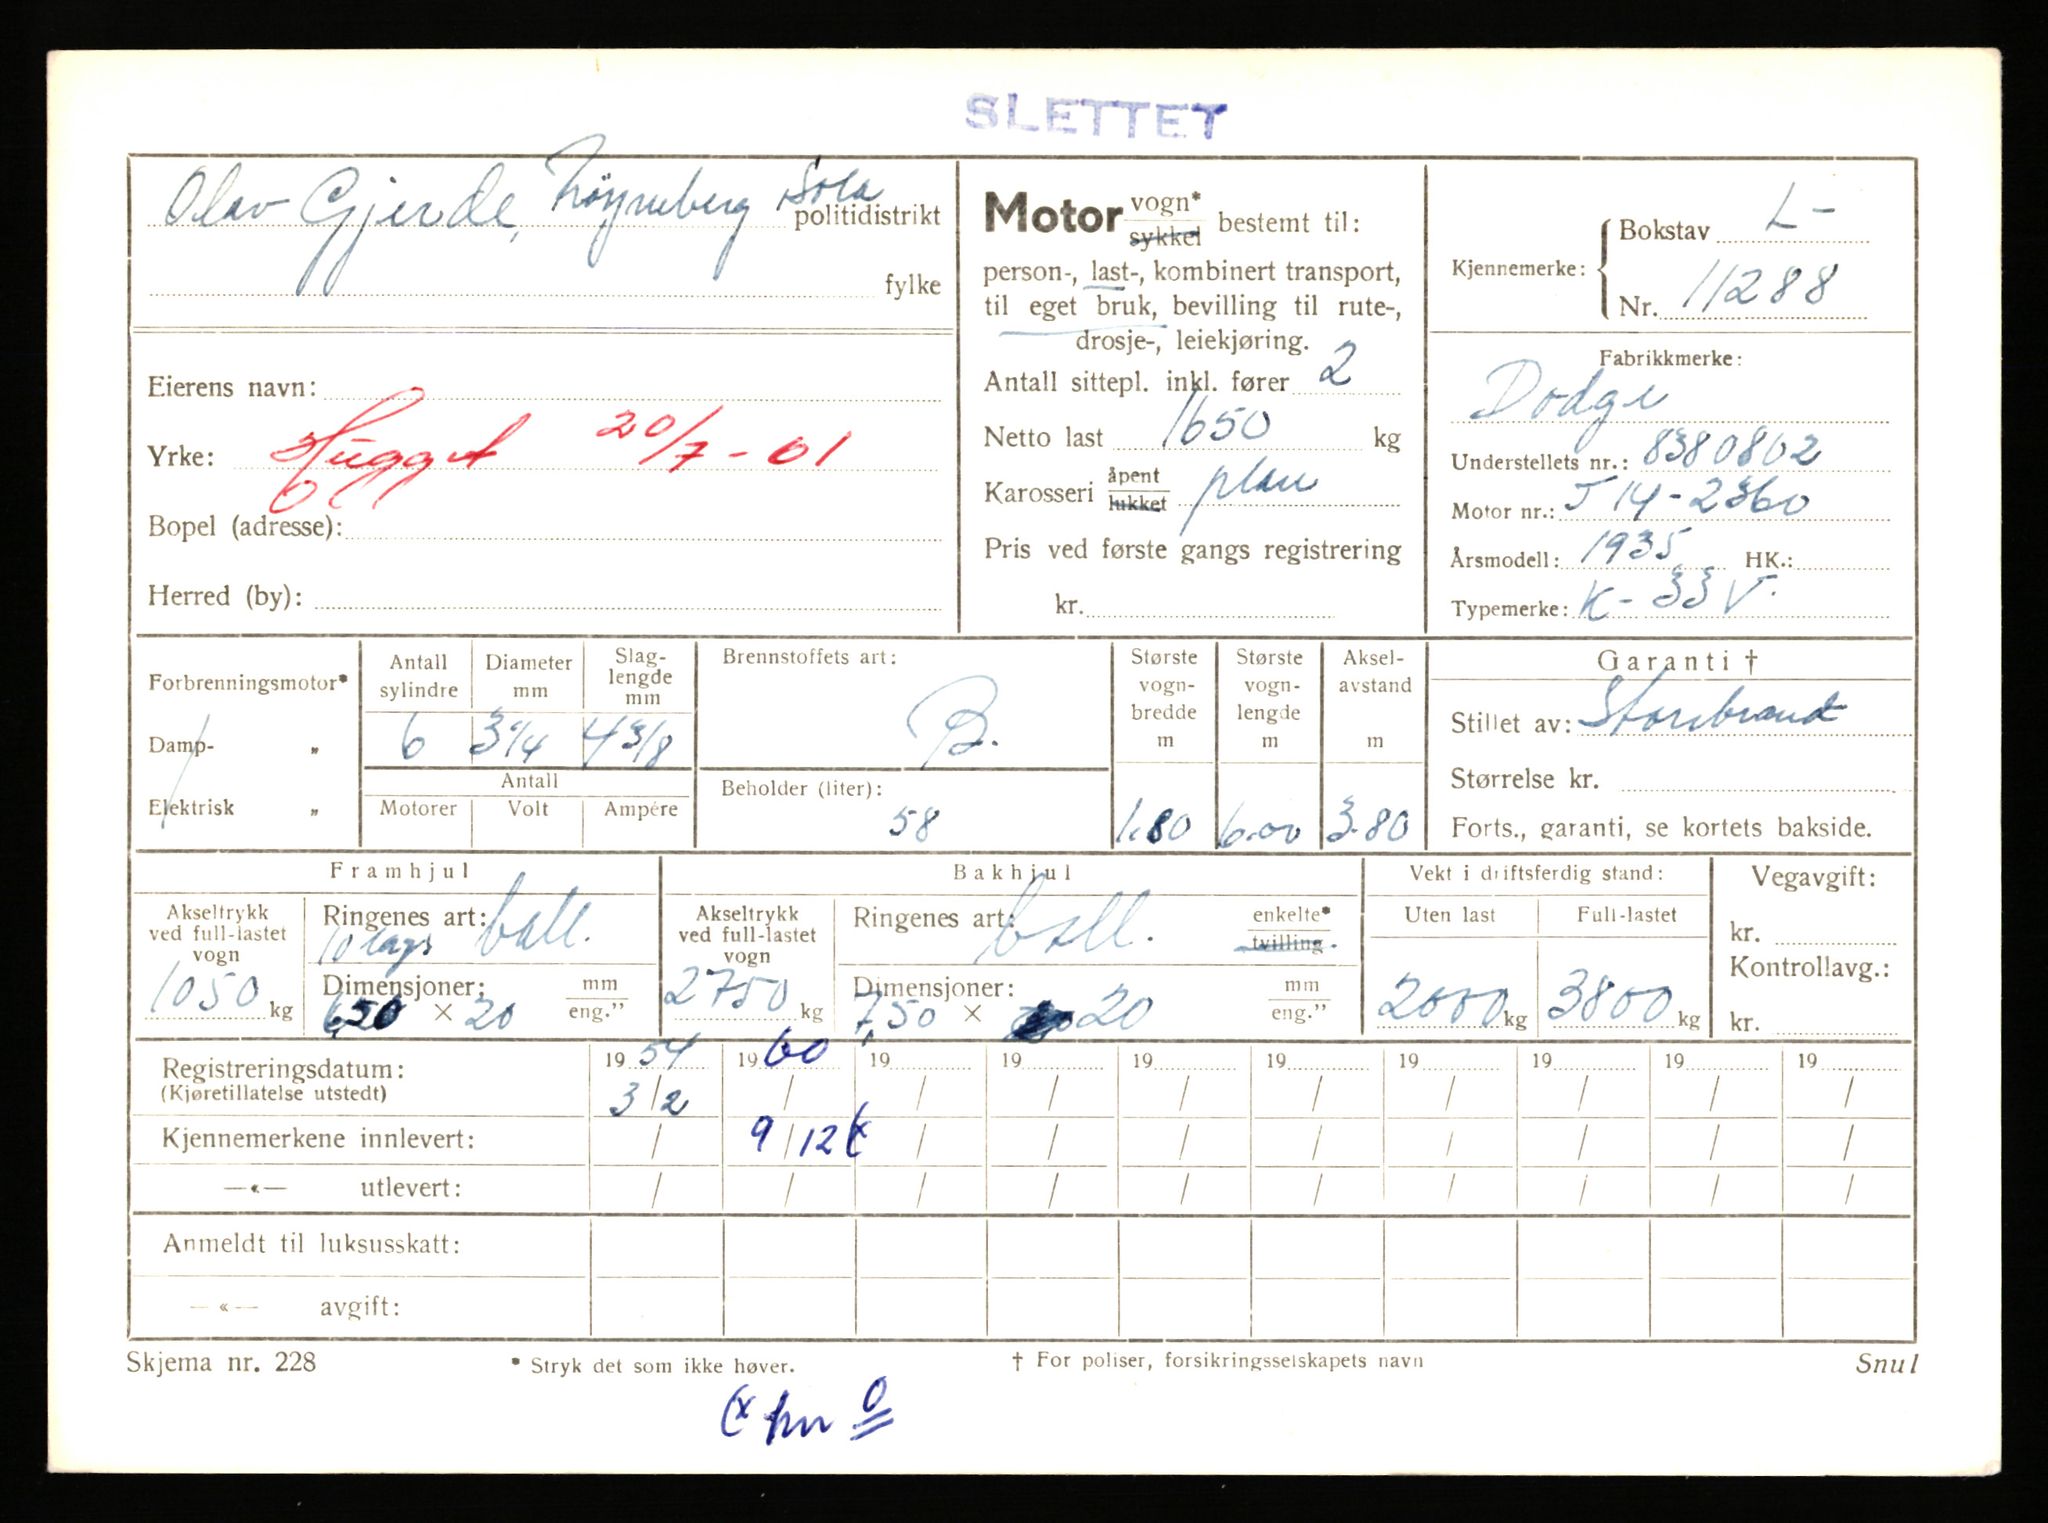 SLETTET
Olav Gjerde, Röyneberg Sola
politidistrikt
fylke
Eierens navn:
Yrke: Hugget 20/7-61
Bopel (adresse):
Herred (by):
Motor vogn* sykkel bestemt til:
person-, last-, kombinert transport,
til eget bruk, bevilling til rute-,
drosje-, leiekjøring.
Antall sittepl. inkl. fører 2
Netto last 1650 kg
Karosseri åpent lukket plan
Pris ved første gangs registrering
kr.
Kjennemerke: Bokstav L-
Nr. 11288
Fabrikkmerke:
Dodge
Understellets nr.: 8380802
Motor nr.: T 14-2360
Årsmodell: 1935 HK.:
Typemerke: K-33V.
Forbrenningsmotor*
Damp- „
Elektrisk „
Antall sylindre Diameter mm Slag-lengde mm
6 3 1/4 4 3/8
Antall
Motorer Volt Ampére
Brennstoffets art:
B.
Beholder (liter):
58
Største vogn-bredde m
1.80
Største vogn-lengde m
6.00
Aksel-avstand m
3.80
Garanti †
Stillet av: Storebrand
Størrelse kr.
Forts., garanti, se kortets bakside.
Framhjul
Akseltrykk ved full-lastet vogn
1050 kg
Ringenes art: ball.
10 lags
Dimensjoner: mm eng."
6,50 × 20
Bakhjul
Akseltrykk ved full-lastet vogn
2750 kg
Ringenes art: ball. enkelte* tvilling.
Dimensjoner: mm eng."
7,50 × 20
Vekt i driftsferdig stand:
Uten last Full-lastet
2000 kg 3800 kg
Vegavgift:
kr.
Kontrollavg.:
kr.
Registreringsdatum: 1954 1960 19 19 19 19 19 19 19 19
(Kjøretillatelse utstedt) 3/2 / / / / / / / / /
Kjennemerkene innlevert: / 9/12 (x / / / / / / / /
—«— utlevert: / / / / / / / / / /
Anmeldt til luksusskatt:
—«— avgift:
Skjema nr. 228 * Stryk det som ikke høver. † For poliser, forsikringsselskapets navn Snul
(x